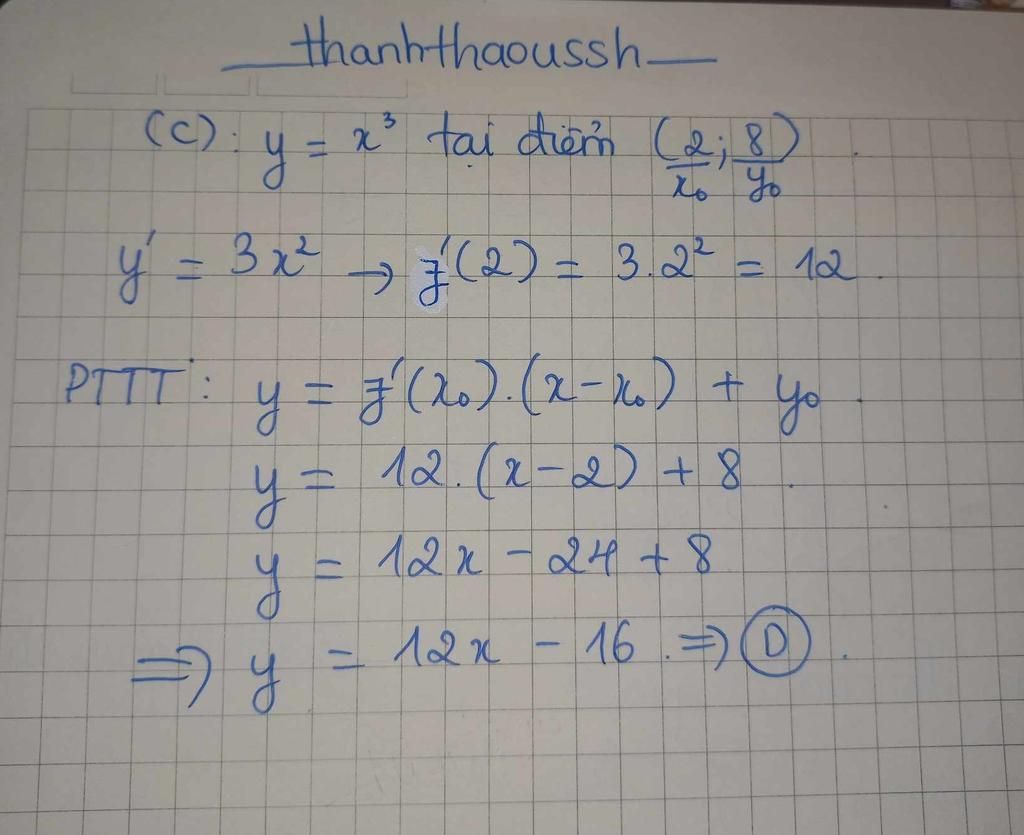 thanhthaoussh
(C): y = x³ tại điểm (2; 8)
x₀ y₀
y' = 3x² → f'(2) = 3.2² = 12.
PTTT: y = f'(x₀).(x - x₀) + y₀.
y = 12.(x - 2) + 8.
y = 12x - 24 + 8
⇒ y = 12x - 16. ⇒ D.